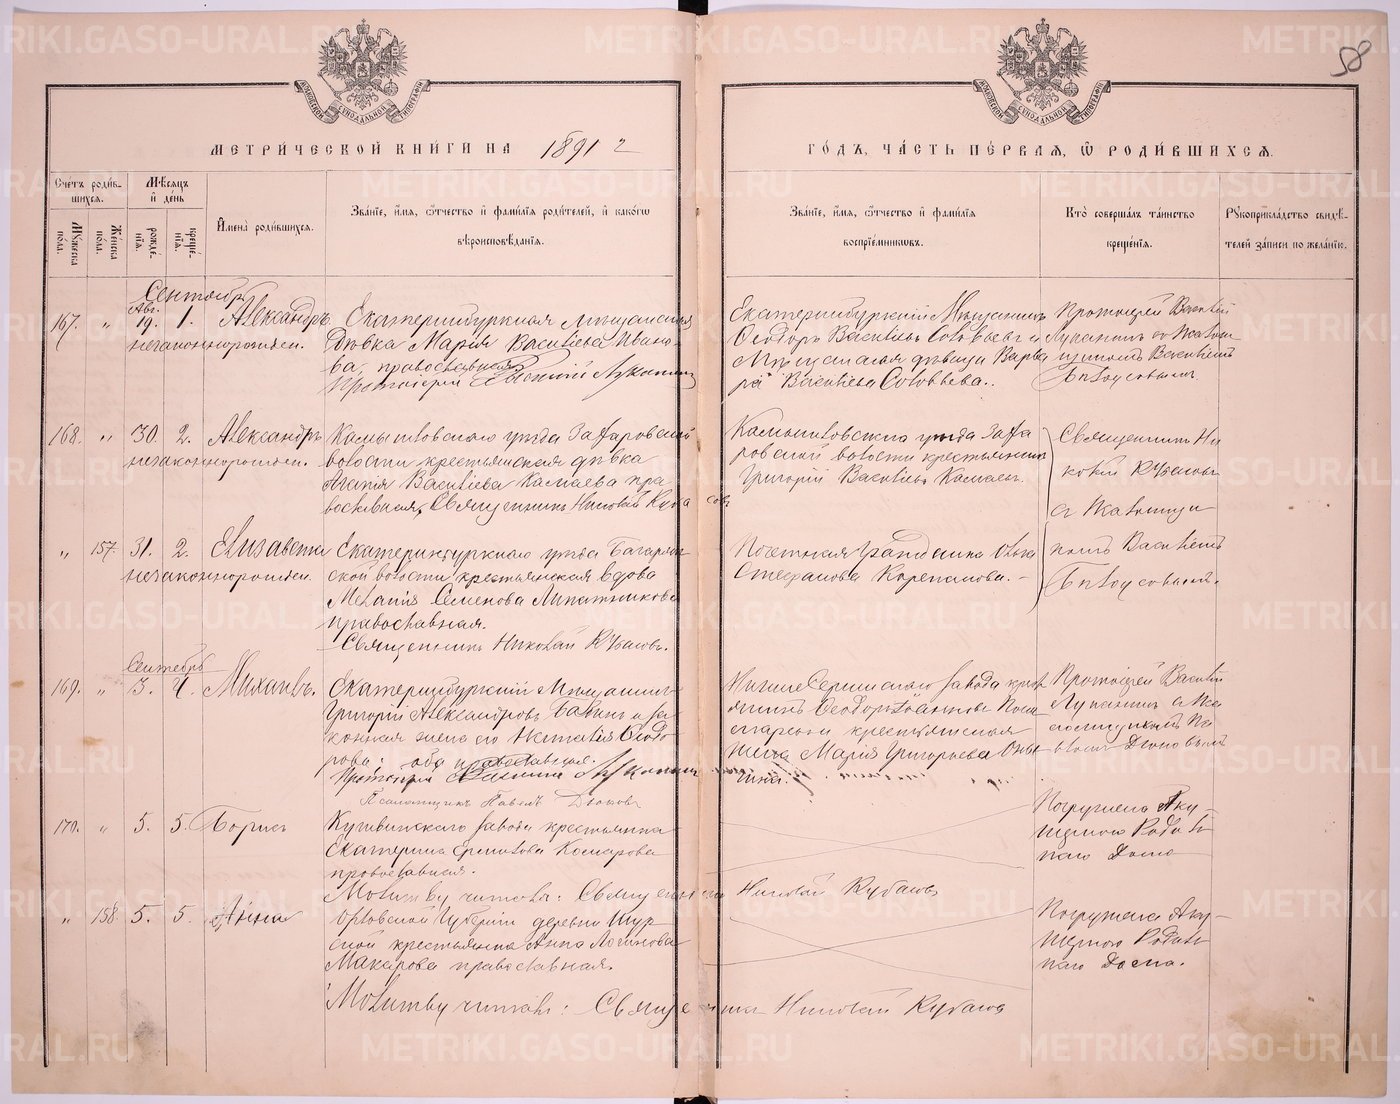 58
МЕТРИ́ЧЕСКОЙ КНИ́ГИ НА 1891 г
ГО́ДЪ, ЧА́СТЬ ПЕ́РВАЯ, Ѿ РОДИ́ВШИХСЯ.
Сче́тъ роди́в-
шихся.
Му́жеска по́ла.
Же́нска по́ла.
Мѣ́сяцъ и҆ де́нь
рожде́-
нїя.
креще́-
нїя.
И҆мена̀ роди́вшихся.
Зва́нїе, и҆́мя, ѻ҆́тчество и҆ фами́лїя роди́телей, и҆ како́гѡ
вѣроисповѣ́данїя.
Зва́нїе, и҆́мя, ѻ҆́тчество и҆ фами́лїя
воспрїе́мникѡвъ.
Кто̀ соверша́лъ та́инство
креще́нїя.
Рꙋкоприкла́дство свидѣ́-
телей за́писи по жела́нїю.
Сентябрь
167. " Авг. 19. 1. Александръ.
незаконнорожден.
Екатеринбургская мѣщанская
дѣвка Марія Васильева Ивано-
ва, православная
Протоіерей Василій Луканинъ
Екатеринбургскій Мѣщанинъ
Ѳеодоръ Васильевъ Соловьевъ и
Мѣщанская дѣвица Варва
ра Васильева Соловьева.
Протоіерей Василій
Луканинъ съ Псалом
щикомъ Василіемъ
Бѣлоусовымъ.
168. " 30. 2. Александръ
незаконнорожден.
Камышловскаго уѣзда
волости крестьянская дѣвка
Агапія Васильева Камаева пра
вославная, Священникъ Николай Кубасовъ
Камышловскаго уѣзда
волости крестьянинъ
Григорій Васильевъ Камаевъ.
Священникъ Ни
колай Кубасовъ
съ Псаломщи
комъ Василіемъ
Бѣлоусовымъ.
" 157. 31. 2. Елизавета
незаконнорожден.
Екатеринбургскаго уѣзда Багаряк
ской волости крестьянская вдова
Меланія Семенова Липатникова
православная.
Священникъ Николай Кубасовъ.
Почетная гражданка Ольга
Стефанова Карепанова.
Сентябрь
169. " 3. 4. Михаилъ.
Екатеринбургскій Мѣщанинъ
Григорій Александровъ Бабинъ и за
конная жена его Наталія Ѳеодо
рова: оба православные.
Протоіерей Василій Луканинъ
Псаломщикъ Павелъ
Нижне Сергинскаго завода крест
янинъ Ѳеодоръ Іоанновъ
крестьянская
Марія Григорьева
Протоіерей Василій
Луканинъ съ Пса
ломщикомъ Па
вломъ
170. " 5. 5. Борисъ
Кушвинскаго завода крестьянка
Екатерина Ермилова Комарова
православная.
Молитву читалъ: Священникъ Николай Кубасовъ
Погружена Аку-
шеркою Родиль
наго Дома
" 158. 5. 5. Анна
Орловской Губерніи деревни
крестьянка Анна Логинова
Макарова православная.
Молитву читалъ: Священникъ Николай Кубасовъ
Погружена Аку-
шеркою Родиль
наго Дома.
METRIKI.GASO-URAL.RU